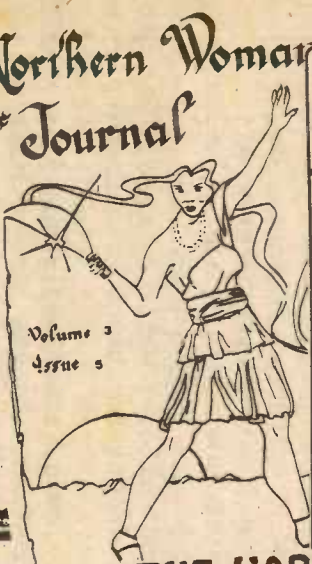 Northern Woman
Journal
Volume 3
Issue 5
THE NOR